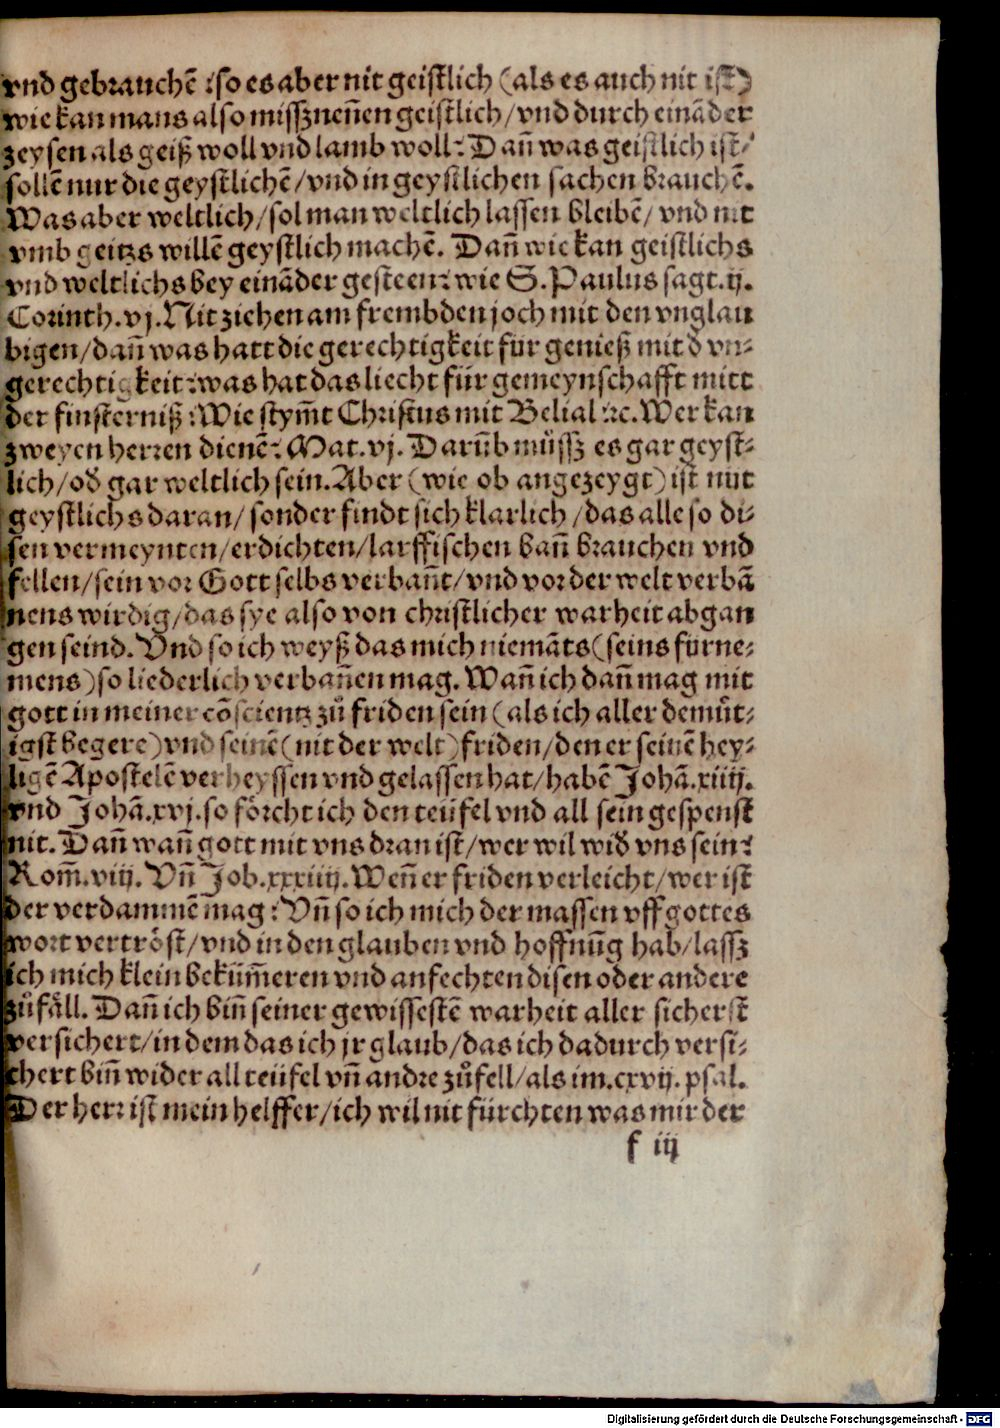 vnd gebrauchē: so es aber nit geistlich (als es auch nit ist)
wie kan mans also missznen̄en geistlich / vnd durch eināder
zeysen als geiß woll vnd lamb woll: Dan̄ was geistlich ist /
sollē nur die geystlichē / vnd in geystlichen sachen brauchē.
Was aber weltlich / sol man weltlich lassen bleibē / vnd nit
vmb geitzs willē geystlich machē. Dan̄ wie kan geistlichs
vnd weltlichs bey eināder gesteen: wie S. Paulus sagt .ij.
Corinth. vj. Nit ziehen am frembden joch mit den vnglau
bigen / dan̄ was hatt die gerechtigkeit für genieß mit d̄ vn-
gerechtigkeit: was hat das liecht für gemeynschafft mitt
der finsterniß: Wie stym̄t Christus mit Belial ꝛc. Wer kan
zweyen herren dienē: Mat. vj. Darum̄b müssz es gar geyst-
lich / od̄ gar weltlich sein. Aber (wie ob angezeygt) ist nit
geystlichs daran / sonder findt sich klarlich / das alle so di-
sen vermeynten / erdichten / larffischen ban̄ brauchen vnd
fellen / sein vor Gott selbs verban̄t / vnd vor der welt verbā
nens wirdig / das sye also von christlicher warheit abgan
gen seind. Vnd so ich weyß das mich niemāts (seins fürne-
mens) so liederlich verban̄en mag. Wan̄ ich dan̄ mag mit
gott in meiner cōscientz zů friden sein (als ich aller demůt-
igst begere) vnd seinē (nit der welt) friden / den er seinē hey-
ligē Apostelē verheyssen vnd gelassen hat / habē Johā. xiiij.
vnd Johā. xvj. so förcht ich den teüfel vnd all sein gespenst
nit. Dan̄ wan̄ gott mit vns dran ist / wer wil wid̄ vns sein:
Rom̄. viij. Vn̄ Job. xxxiiij. Wen̄ er friden verleicht / wer ist
der verdammē mag: Vn̄ so ich mich der massen vff gottes
wort vertröst / vnd in den glauben vnd hoffnūg hab / lassz
ich mich klein beküm̄eren vnd anfechten disen oder andere
zůfäll. Dan̄ ich bin̄ seiner gewissestē warheit aller sicherst
versichert / in dem das ich jr glaub / das ich dadurch versi-
chert bin̄ wider all teüfel vn̄ andre zůfell / als im. cxvij. psal.
Der herr ist mein helffer / ich wil nit fürchten was mir der
f iij
Digitalisierung gefördert durch die Deutsche Forschungsgemeinschaft - DFG